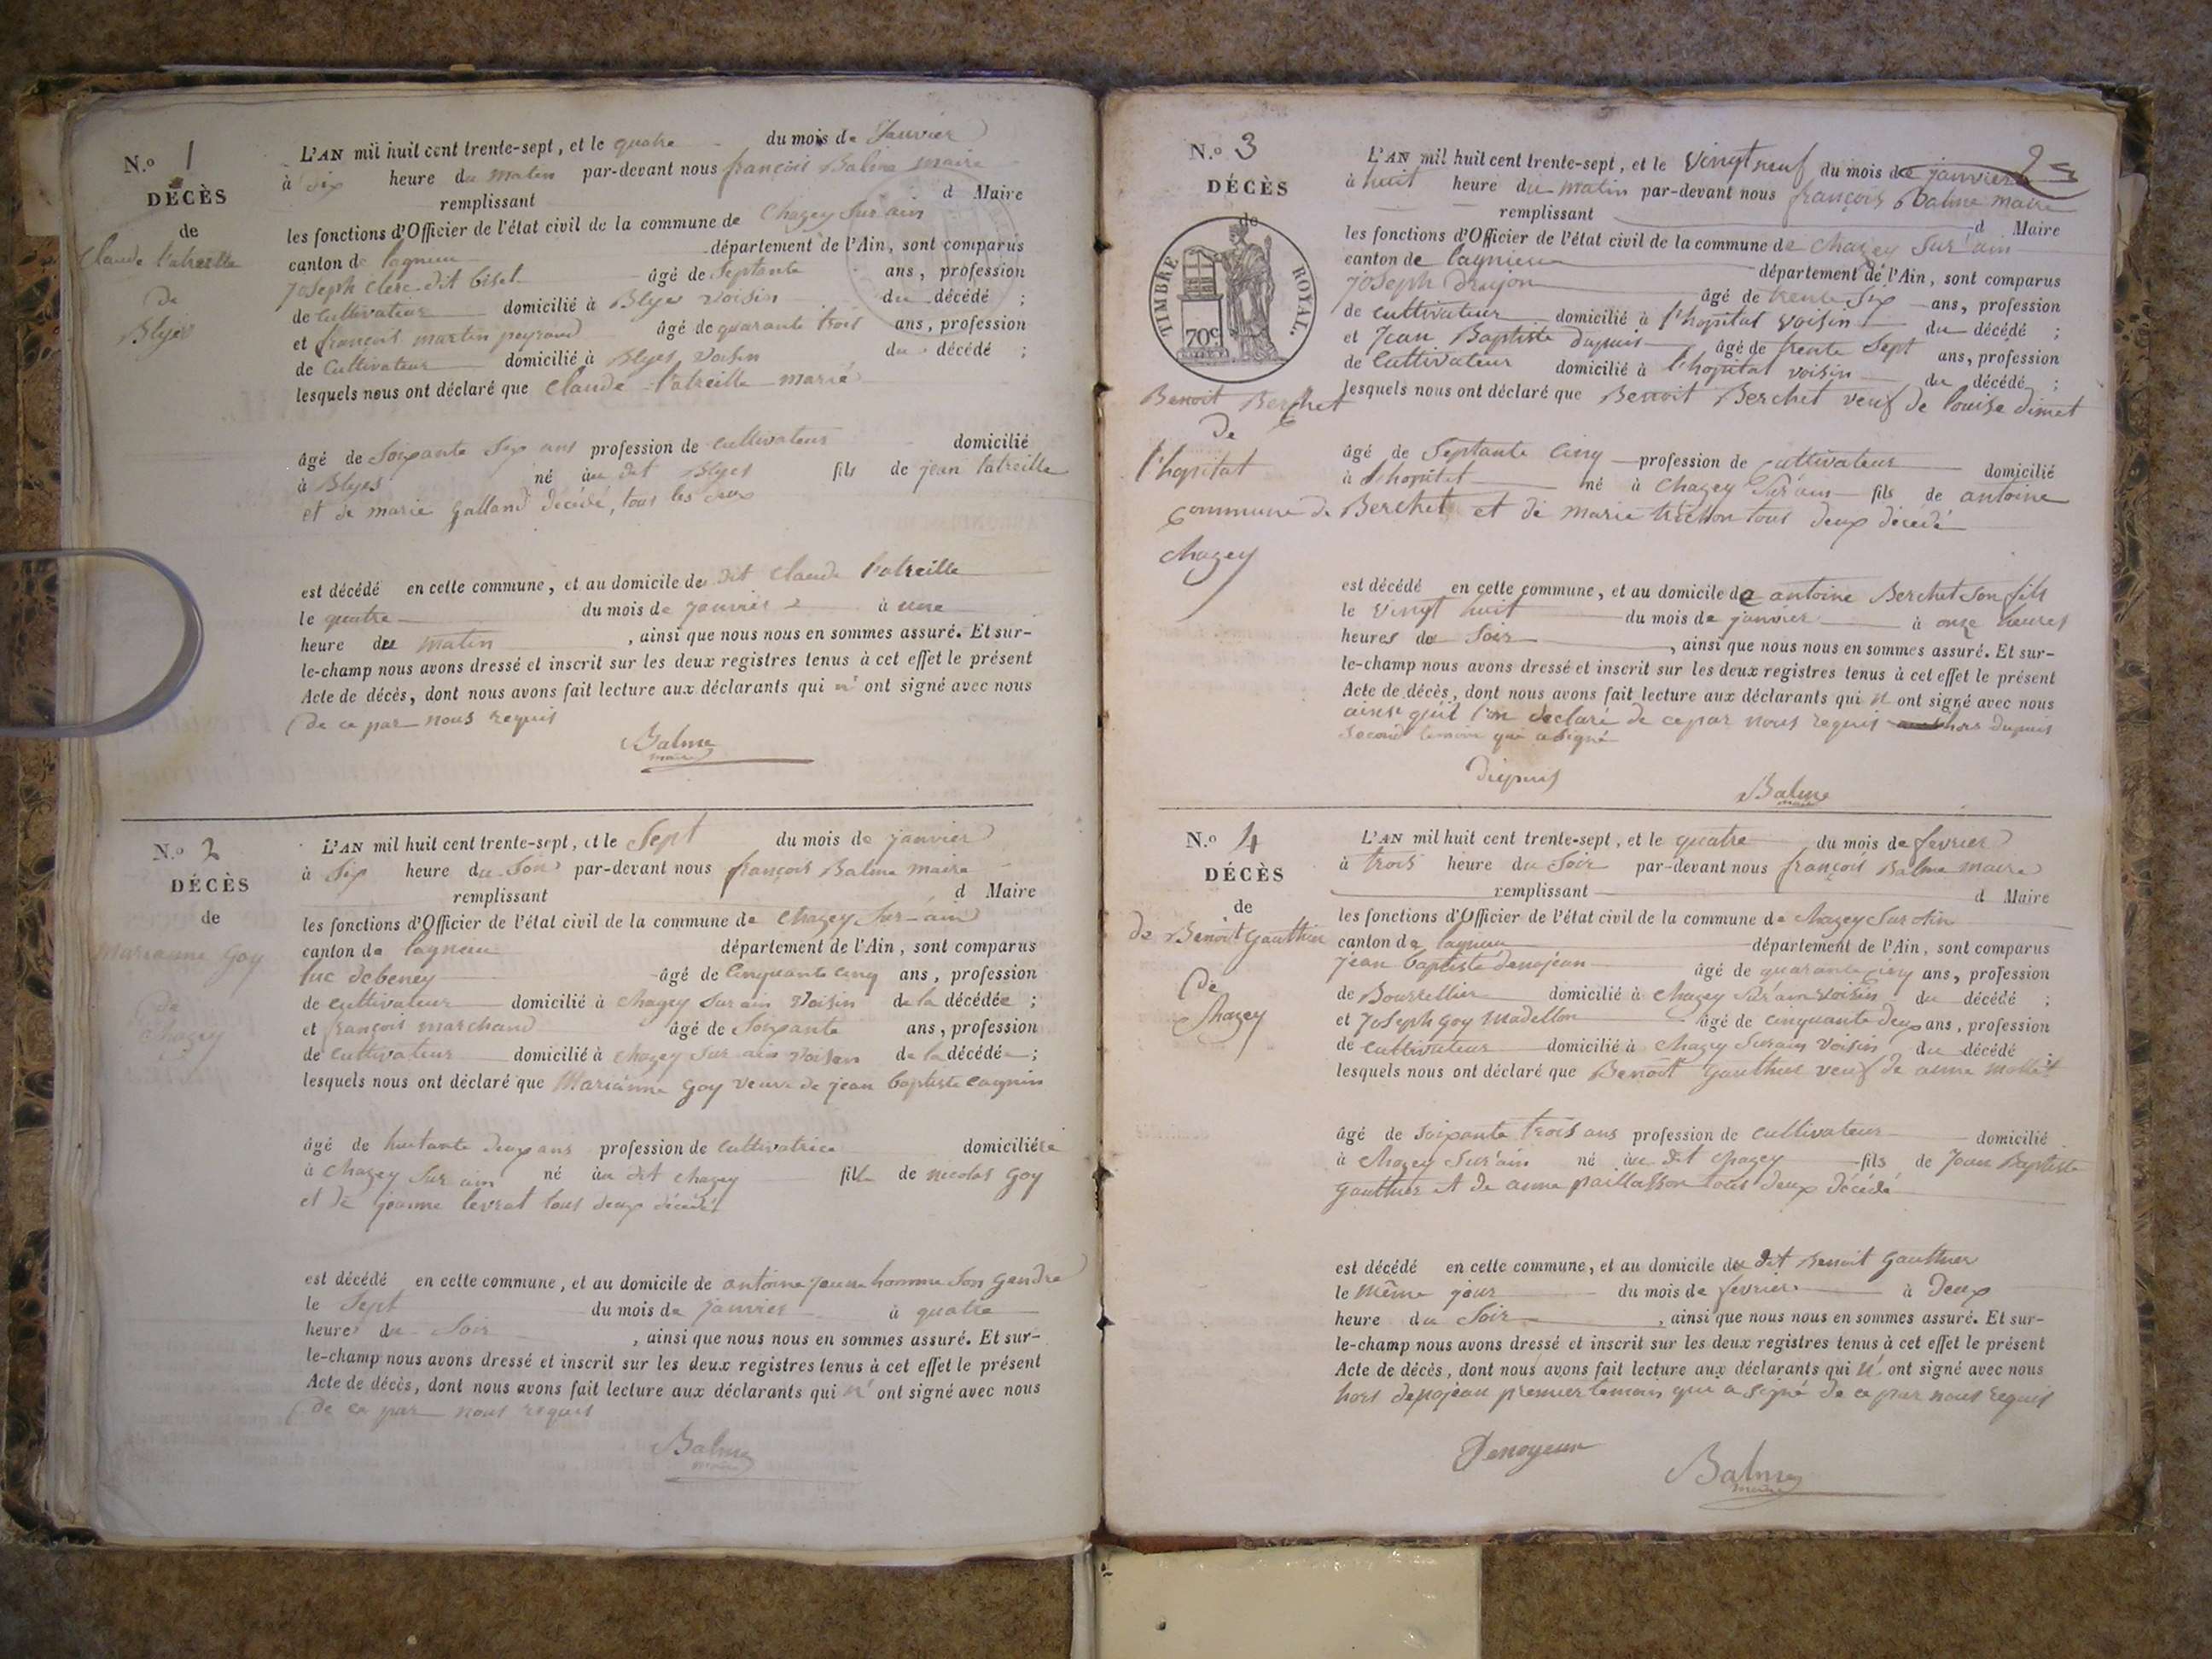 N.o 1
DÉCÈS
de
Claude Latreille
de
Blyes
L'AN mil huit cent trente-sept, et le quatre du mois de Janvier
à six heure du matin par-devant nous françois Balme maire
remplissant d Maire
les fonctions d'Officier de l'état civil de la commune de Chazey Sur ain
canton de lagnieu département de l'Ain, sont comparus
Joseph Clerc dit Biset âgé de Septante ans, profession
de Cultivateur domicilié à Blyes voisin du décédé ;
et françois martin peyraud âgé de quarante trois ans, profession
de Cultivateur domicilié à Blyes voisin du décédé ;
lesquels nous ont déclaré que Claude Latreille marié
âgé de Soixante Six ans profession de cultivateur domicilié
à Blyes né au dit Blyes fils de jean latreille
et de marie galland décédé, tous les deux
est décédé en cette commune, et au domicile de dit Claude Latreille
le quatre du mois de janvier à une
heure du matin, ainsi que nous nous en sommes assuré. Et sur-
le-champ nous avons dressé et inscrit sur les deux registres tenus à cet effet le présent
Acte de décès, dont nous avons fait lecture aux déclarants qui n' ont signé avec nous
de ce par nous requis
Balme
maire
N.o 2
DÉCÈS
de
Marianne Goy
de
Chazey
L'AN mil huit cent trente-sept, et le Sept du mois de janvier
à Six heure du Soir par-devant nous françois Balme maire
remplissant d Maire
les fonctions d'Officier de l'état civil de la commune de Chazey Sur-ain
canton de lagnieu département de l'Ain, sont comparus
luc debeney âgé de Cinquante cinq ans, profession
de cultivateur domicilié à Chazey Sur ain voisin de la décédée ;
et françois marchand âgé de Soixante ans, profession
de cultivateur domicilié à Chazey Sur ain voisin de la décédée ;
lesquels nous ont déclaré que Marianne Goy veuve de jean baptiste cagnin
âgé de huitante deux ans profession de Cultivatrice domiciliée
à Chazey Sur ain né au dit Chazey fille de nicolas Goy
et de jeanne levrat tous deux décédés
est décédé en cette commune, et au domicile de antoine jeune homme Son gendre
le Sept du mois de janvier à quatre
heures du Soir, ainsi que nous nous en sommes assuré. Et sur-
le-champ nous avons dressé et inscrit sur les deux registres tenus à cet effet le présent
Acte de décès, dont nous avons fait lecture aux déclarants qui n' ont signé avec nous
de ce par nous requis
Balme
maire
2
N.o 3
DÉCÈS
de
TIMBRE ROYAL.
70c
Benoit Berchet
de
l'hopital
commune de
Chazey
L'AN mil huit cent trente-sept, et le Vingt neuf du mois de janvier
à huit heure du matin par-devant nous françois Balme maire
remplissant d Maire
les fonctions d'Officier de l'état civil de la commune de Chazey Sur ain
canton de lagnieu département de l'Ain, sont comparus
Joseph Drujon âgé de trente Six ans, profession
de cultivateur domicilié à l'hopital voisin du décédé ;
et Jean Baptiste Dupuis âgé de trente Sept ans, profession
de Cultivateur domicilié à l'hopital voisin du décédé ;
lesquels nous ont déclaré que Benoit Berchet veuf de louise dimet
âgé de Septante Cinq profession de cultivateur domicilié
à l'hopital né à Chazey Sur ain fils de antoine
Berchet et de marie trichon tous deux décédé
est décédé en cette commune, et au domicile de antoine Berchet son fils
le Vingt huit du mois de janvier à onze heures
heures du Soir, ainsi que nous nous en sommes assuré. Et sur-
le-champ nous avons dressé et inscrit sur les deux registres tenus à cet effet le présent
Acte de décès, dont nous avons fait lecture aux déclarants qui n ont signé avec nous
ainsi qu'il l'on declaré de ce par nous requis hors dupuis
Second temoin qui a signé
Dupuis
Balme
maire
N.o 4
DÉCÈS
de
de Benoit Gauthier
de
Chazey
L'AN mil huit cent trente-sept, et le quatre du mois de fevrier
à trois heure du Soir par-devant nous françois Balme maire
remplissant d Maire
les fonctions d'Officier de l'état civil de la commune de Chazey Sur ain
canton de lagnieu département de l'Ain, sont comparus
jean baptiste denojean âgé de quarante cinq ans, profession
de Bourrellier domicilié à Chazey Sur ain voisin du décédé ;
et Joseph Goy Madellon âgé de cinquante deux ans, profession
de cultivateur domicilié à Chazey Sur ain voisin du décédé ;
lesquels nous ont déclaré que Benoit Gauthier veuf de anne mollet
âgé de Soixante trois ans profession de cultivateur domicilié
à Chazey Sur ain né au dit Chazey fils de Jean Baptiste
Gauthier et de anne paillasson tous deux décédé
est décédé en cette commune, et au domicile du dit Benoit Gauthier
le même jour du mois de fevrier à Deux
heure du Soir, ainsi que nous nous en sommes assuré. Et sur-
le-champ nous avons dressé et inscrit sur les deux registres tenus à cet effet le présent
Acte de décès, dont nous avons fait lecture aux déclarants qui n' ont signé avec nous
hors denojean premier temoin qui a signé de ce par nous requis
Balme
maire